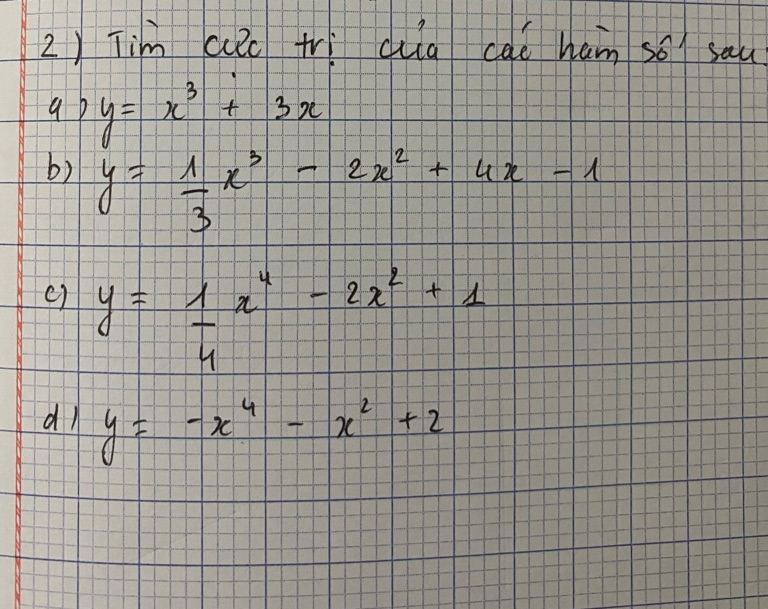 2) Tìm cực trị của các hàm số sau:
a) y = x³ + 3x
b) y = 1/3 x³ - 2x² + 4x - 1
c) y = 1/4 x⁴ - 2x² + 1
d) y = -x⁴ - x² + 2